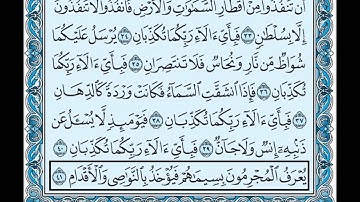 أَن تَنفُذُوا۟ مِنْ أَقْطَارِ ٱلسَّمَـٰوَٰتِ وَٱلْأَرْضِ فَٱنفُذُوا۟ لَا تَنفُذُونَ
إِلَّا بِسُلْطَـٰنٍ ٣٣ فَبِأَىِّ ءَالَآءِ رَبِّكُمَا تُكَذِّبَانِ ٣٤ يُرْسَلُ عَلَيْكُمَا
شُوَاظٌ مِّن نَّارٍ وَنُحَاسٌ فَلَا تَنتَصِرَانِ ٣٥ فَبِأَىِّ ءَالَآءِ رَبِّكُمَا
تُكَذِّبَانِ ٣٦ فَإِذَا ٱنشَقَّتِ ٱلسَّمَآءُ فَكَانَتْ وَرْدَةً كَٱلدِّهَانِ
٣٧ فَبِأَىِّ ءَالَآءِ رَبِّكُمَا تُكَذِّبَانِ ٣٨ فَيَوْمَئِذٍ لَّا يُسْـَٔلُ عَن
ذَنۢبِهِۦٓ إِنسٌ وَلَا جَآنٌّ ٣٩ فَبِأَىِّ ءَالَآءِ رَبِّكُمَا تُكَذِّبَانِ ٤٠
يُعْرَفُ ٱلْمُجْرِمُونَ بِسِيمَـٰهُمْ فَيُؤْخَذُ بِٱلنَّوَٰصِى وَٱلْأَقْدَامِ ٤١